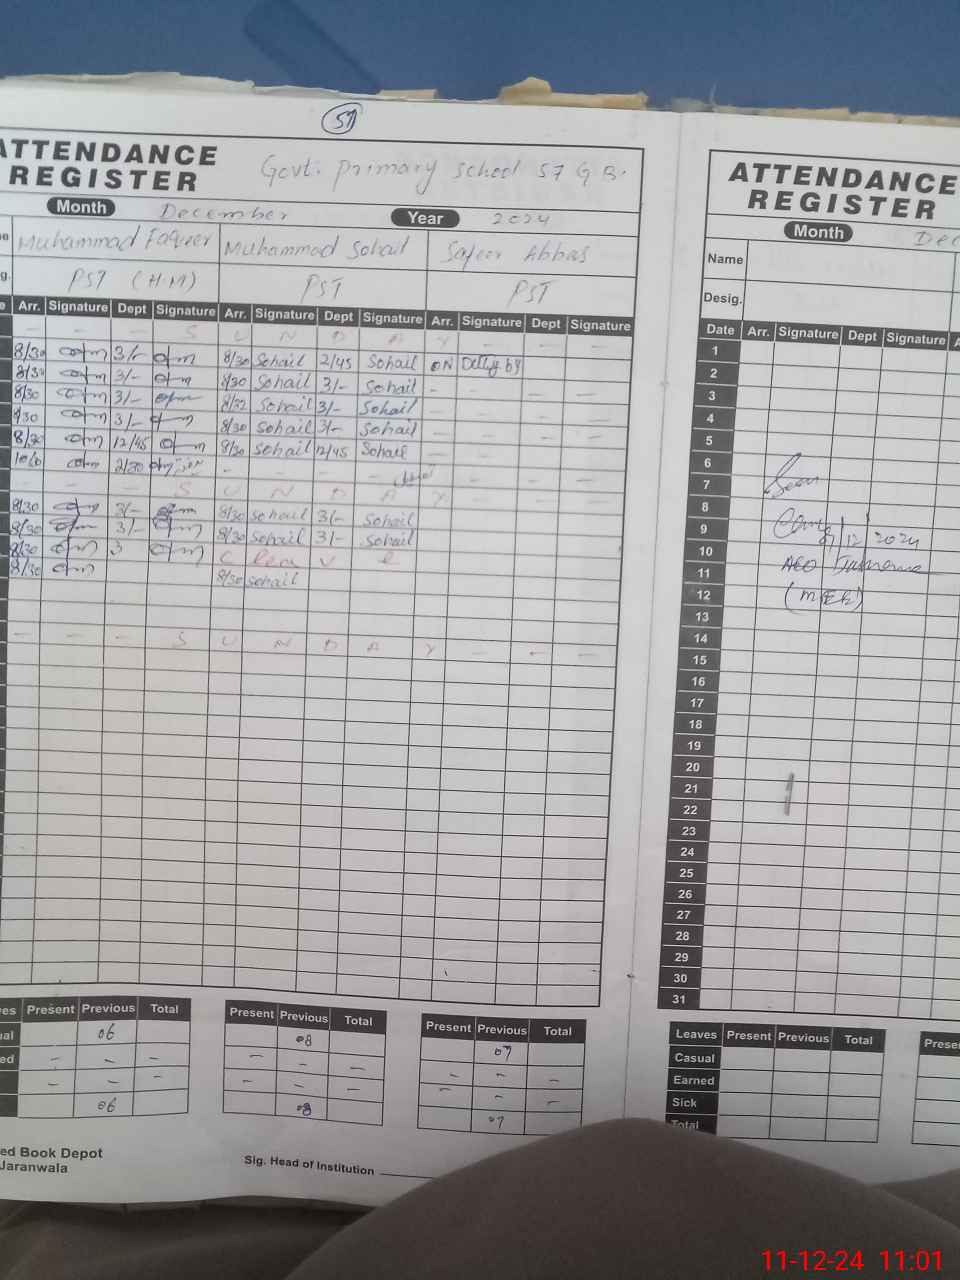 57
ATTENDANCE
REGISTER
Govt. Primary School 57 G B.
Month December Year 2024
Muhammad Faqeer Muhammad Sohail Safeer Abbas
PST (H.M) PST PST
Arr. Signature Dept Signature Arr. Signature Dept Signature Arr. Signature Dept Signature
- - - S U N D A Y - - -
8/30 3/- 8/30 Sohail 2/45 Sohail ON
8/30 3/- 8/30 Sohail 3/- Sohail - - - -
8/30 3/- 8/32 Sohail 3/- Sohail - - - -
8/30 3/- 8/30 Sohail 3/- Sohail - - - -
8/30 12/45 8/30 Sohail 12/45 Sohail - - - -
2/30 - - - -
- - - S U N D A Y - - -
8/30 3/- 8/30 Sohail 3/- Sohail
8/30 3/- 8/30 Sohail 3/- Sohail
8/30 3 C
8/30 8/30 Sohail
- - - S U N D A Y - - -
Present Previous Total
06
- - -
- - -
06
Present Previous Total
08
- - -
- - -
08
Present Previous Total
07
- - -
- - -
07
ed Book Depot
Jaranwala
Sig. Head of Institution
ATTENDANCE
REGISTER
Month Dec
Name
Desig.
Date Arr. Signature Dept Signature A
1
2
3
4
5
6
7
Seen
8
9
12 2024
10
11
AEO
12
13
14
15
16
17
18
19
20
21
22
23
24
25
26
27
28
29
30
31
Leaves Present Previous Total
Casual
Earned
Sick
Total
Prese
11-12-24 11:01